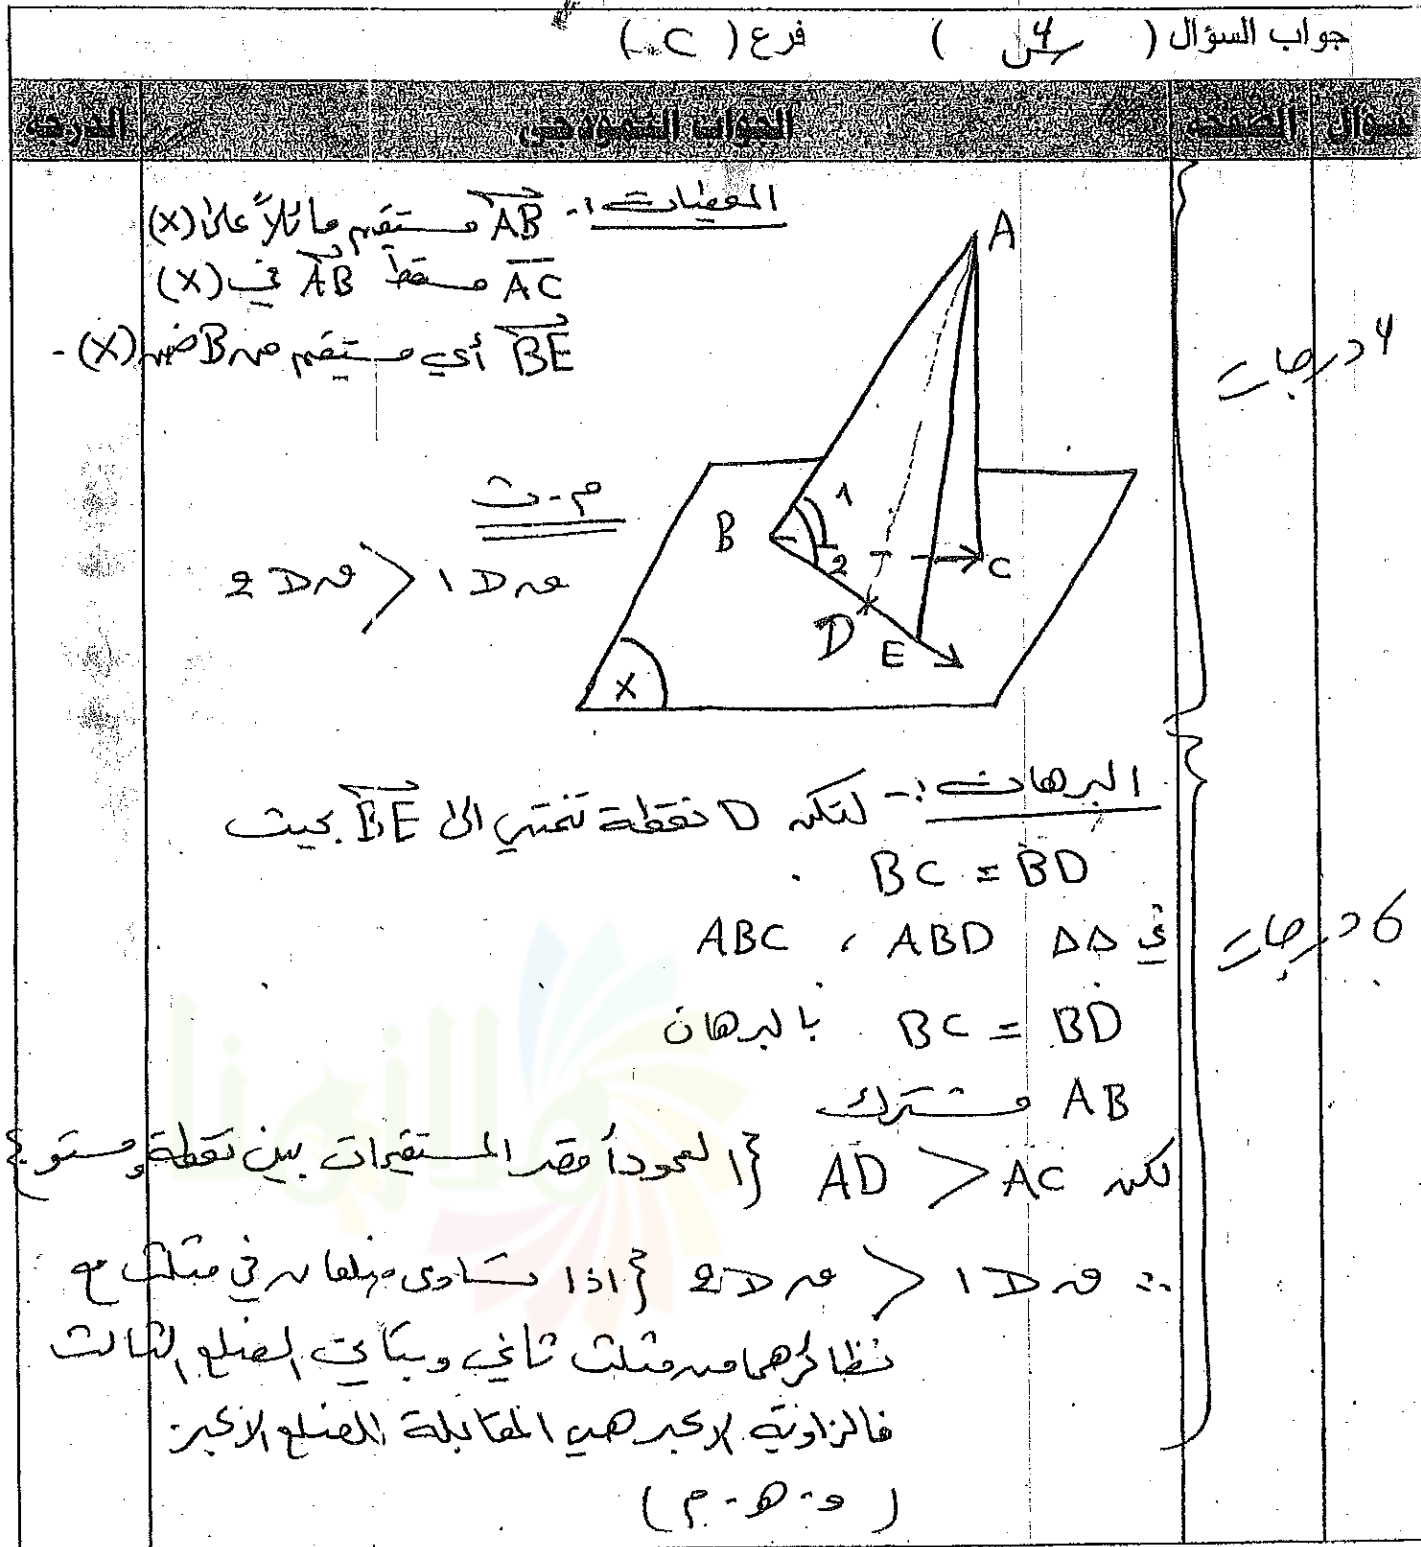 جواب السؤال ( س4 ) فرع ( C )
سؤال الصفحة الجواب النموذجي الدرجة
المعطيات :- AB مستقيم مائلاً على (X)
AC مسقط AB في (X)
BE أي مستقيم من B ضمن (X) -
4 درجات
A
B
1
2
C
D
E
X
م.ث
ق D 1 < ق D 2
البرهان :- لتكن D نقطة تنتمي الى BE بحيث
BC = BD
في ΔΔ ABC ، ABD
6 درجات
BC = BD بالبرهان
AB مشترك
لكن AD > AC {العمود أقصر المستقيمات بين نقطة ومستو}
∴ ق D 1 < ق D 2 {اذا تساوى ضلعان في مثلث مع
نظائرهما من مثلث ثاني وتباين الضلع الثالث
فالزاوية الاكبر هي المقابلة للضلع الاكبر
(و . هـ . م)
ملازمنا